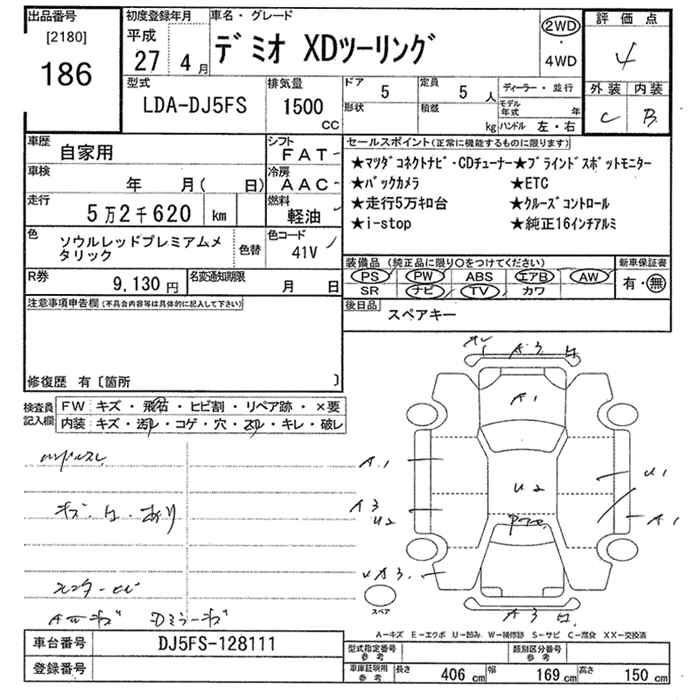 出品番号
[2180]
186
初度登録年月
平成
27年 4月
車名・グレード
デミオ XDツーリング
2WD
・
4WD
評価点
4
外装 内装
C B
型式
LDA-DJ5FS
排気量
1500
CC
ドア 5
形状
定員 5人
積載 kg
ディーラー・並行
モデル年式 年
ハンドル 左・右
車歴
自家用
シフト
FAT
車検
年 月( 日)
冷房
AAC
走行
5万2千620 km
燃料
軽油
色
ソウルレッドプレミアムメタリック
色替
色コード
41V
R券
9,130円
名変通知期限
月 日
セールスポイント(正常に機能するものに限ります)
★マツダコネクトナビ・CDチューナー★ブラインドスポットモニター
★バックカメラ ★ETC
★走行5万キロ台 ★クルーズコントロール
★i-stop ★純正16インチアルミ
装備品(純正品に限り○をつけてください)
PS PW ABS エアB AW
SR ナビ TV カワ
新車保証書
有・無
後日品
スペアキー
注意事項申告欄(不具合内容等は具体的に記入して下さい)
修復歴 有〔箇所 〕
検査員記入欄
FW キズ・飛石・ヒビ割・リペア跡・×要
内装 キズ・汚レ・コゲ・穴・スレ・キレ・破レ
キズ・凹・あり
A3
A1
A1
U1
U2
A3
U2
A1
A3
A3
スペア
A−キズ E−エクボ U−凹み W−補修跡 S−サビ C−腐食 XX−交換済
車台番号 DJ5FS-128111
登録番号
型式指定番号参考
類別区分番号参考
車庫証明用参考
長さ 406cm 幅 169cm 高さ 150cm